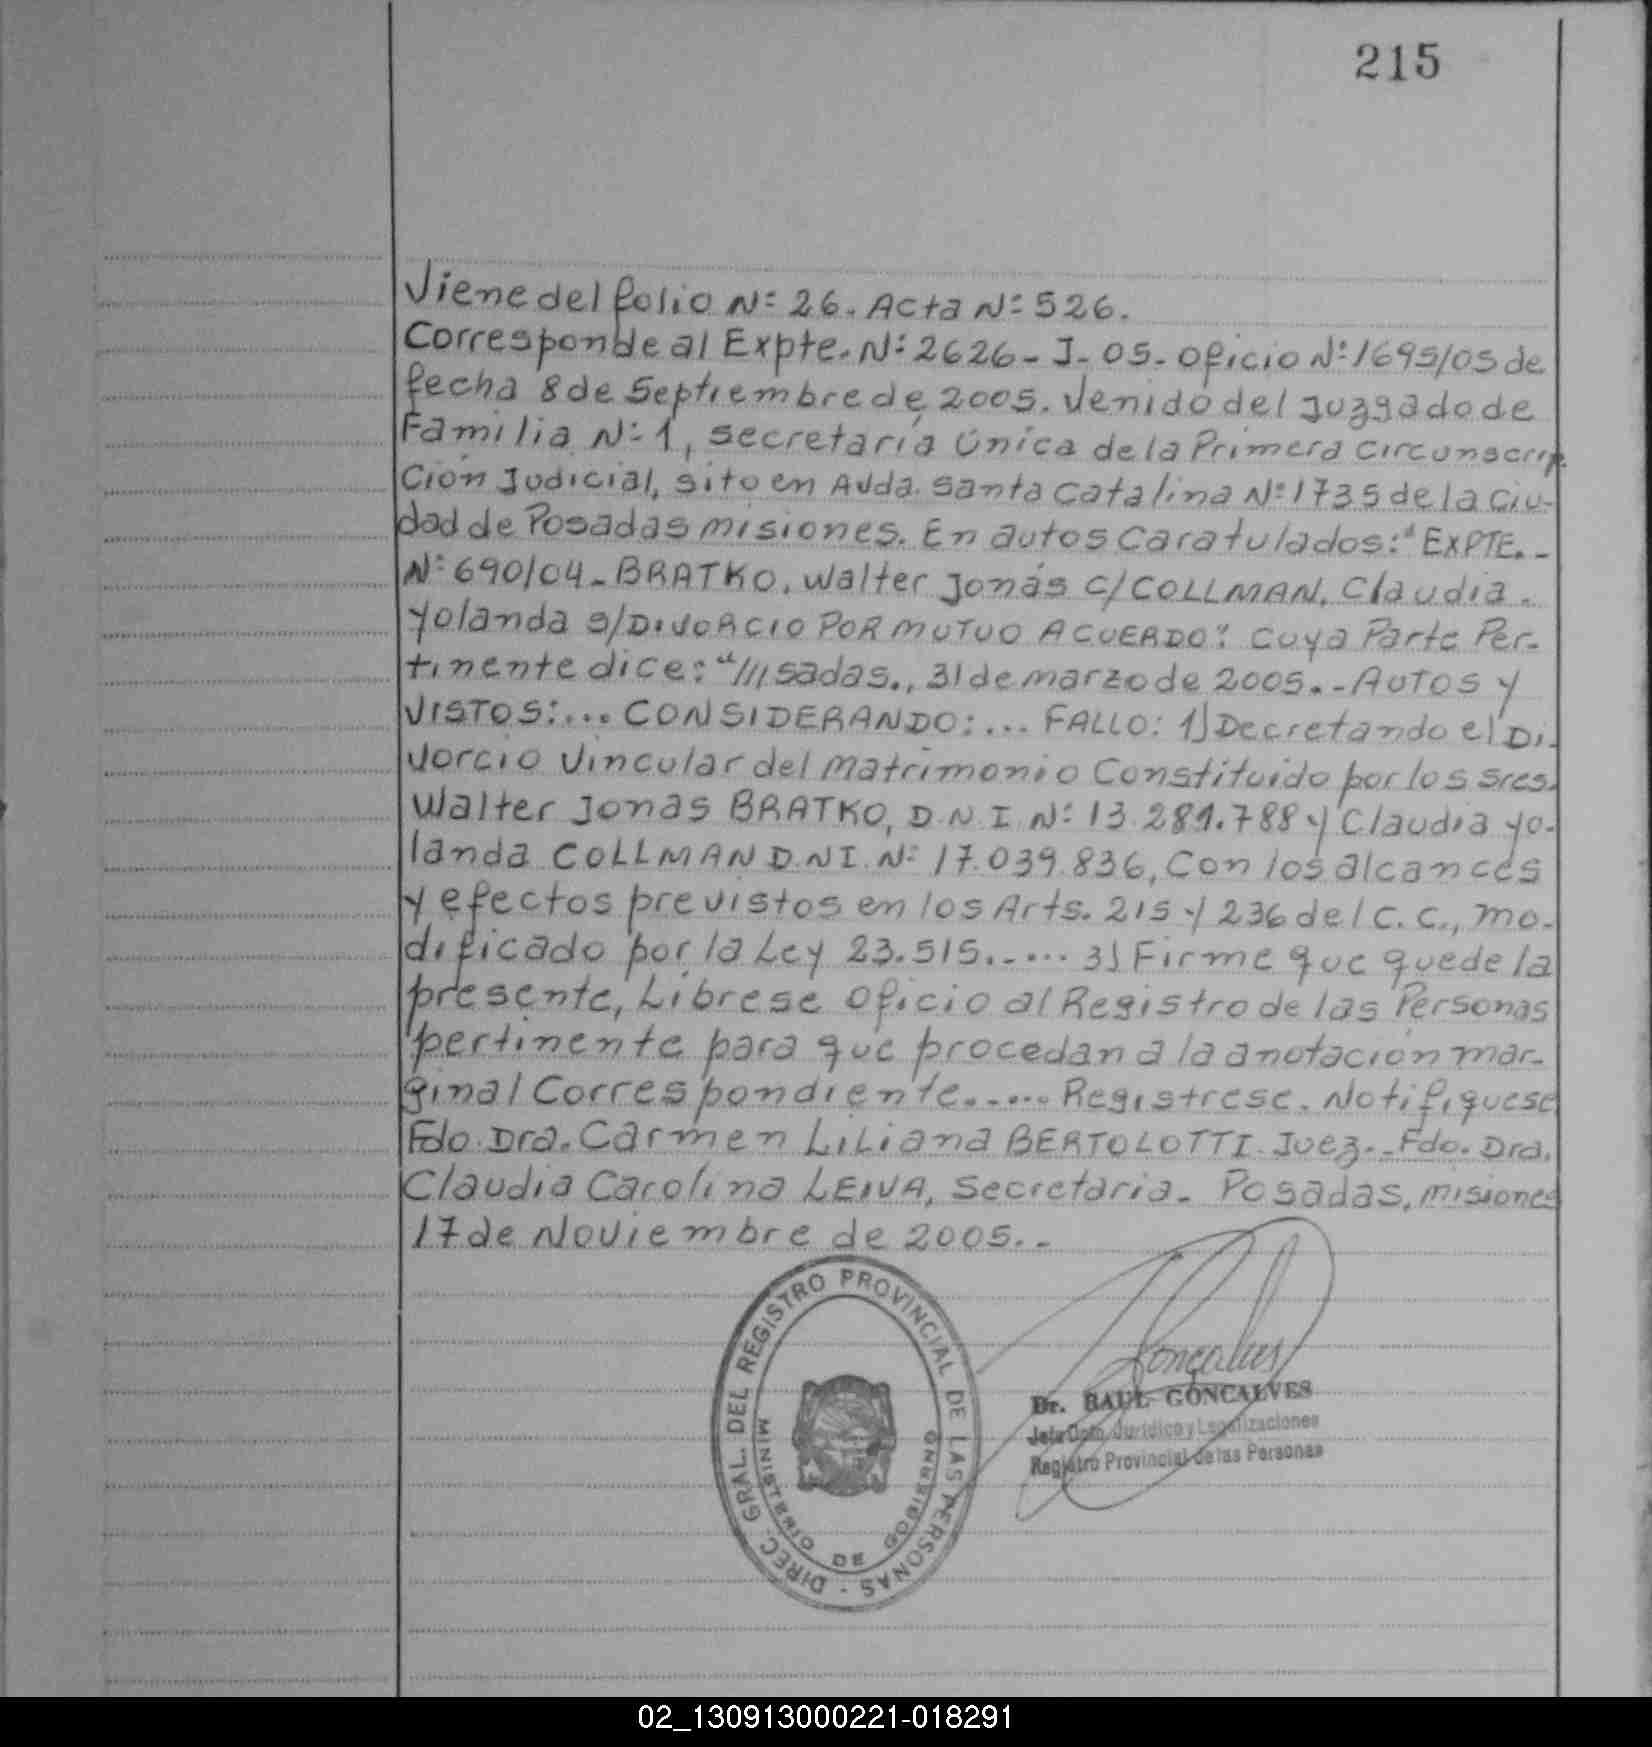 215
Viene del folio N: 26. Acta N: 526.
Corresponde al Expte. N: 2626- J- 05- Oficio N: 1695/05 de
fecha 8 de Septiembre de 2005. Venido del Juzgado de
Familia N: 1, secretaría Única de la Primera Circunscrip-
ción Judicial, sito en Avda. Santa Catalina N: 1735 de la Ciu-
dad de Posadas misiones. En autos Caratulados: "EXPTE.-
N: 690/04- BRATKO, Walter Jonás C/COLLMAN, Claudia.
Yolanda S/DIVORCIO POR MUTUO ACUERDO". Cuya Parte Per-
tinente dice: "///sadas., 31 de marzo de 2005.- AUTOS Y
VISTOS:... CONSIDERANDO:... FALLO: 1) Decretando el Di-
vorcio Vincular del matrimonio Constituido por los Sres.
Walter Jonas BRATKO, D.N.I. N: 13.281.788 y Claudia Yo-
landa COLLMAN D.N.I. N: 17.039.836, Con los alcances
y efectos previstos en los Arts. 215 y 236 del C.C., mo-
dificado por la Ley 23.515..... 3) Firme que quede la
presente, Librese Oficio al Registro de las Personas
pertinente para que procedan a la anotación mar-
ginal Correspondiente...... Registrese. Notifiquese
Fdo. Dra. Carmen Liliana BERTOLOTTI. Juez.- Fdo. Dra.
Claudia Carolina LEIVA, Secretaria. Posadas, misiones
17 de Noviembre de 2005.-
DIREC. GRAL. DEL REGISTRO PROVINCIAL DE LAS PERSONAS -
MINISTERIO DE GOBIERNO
Goncalves
Dr. RAUL GONCALVES
Jefe Dpto. Jurídico y Legalizaciones
Registro Provincial de las Personas
02_130913000221-018291